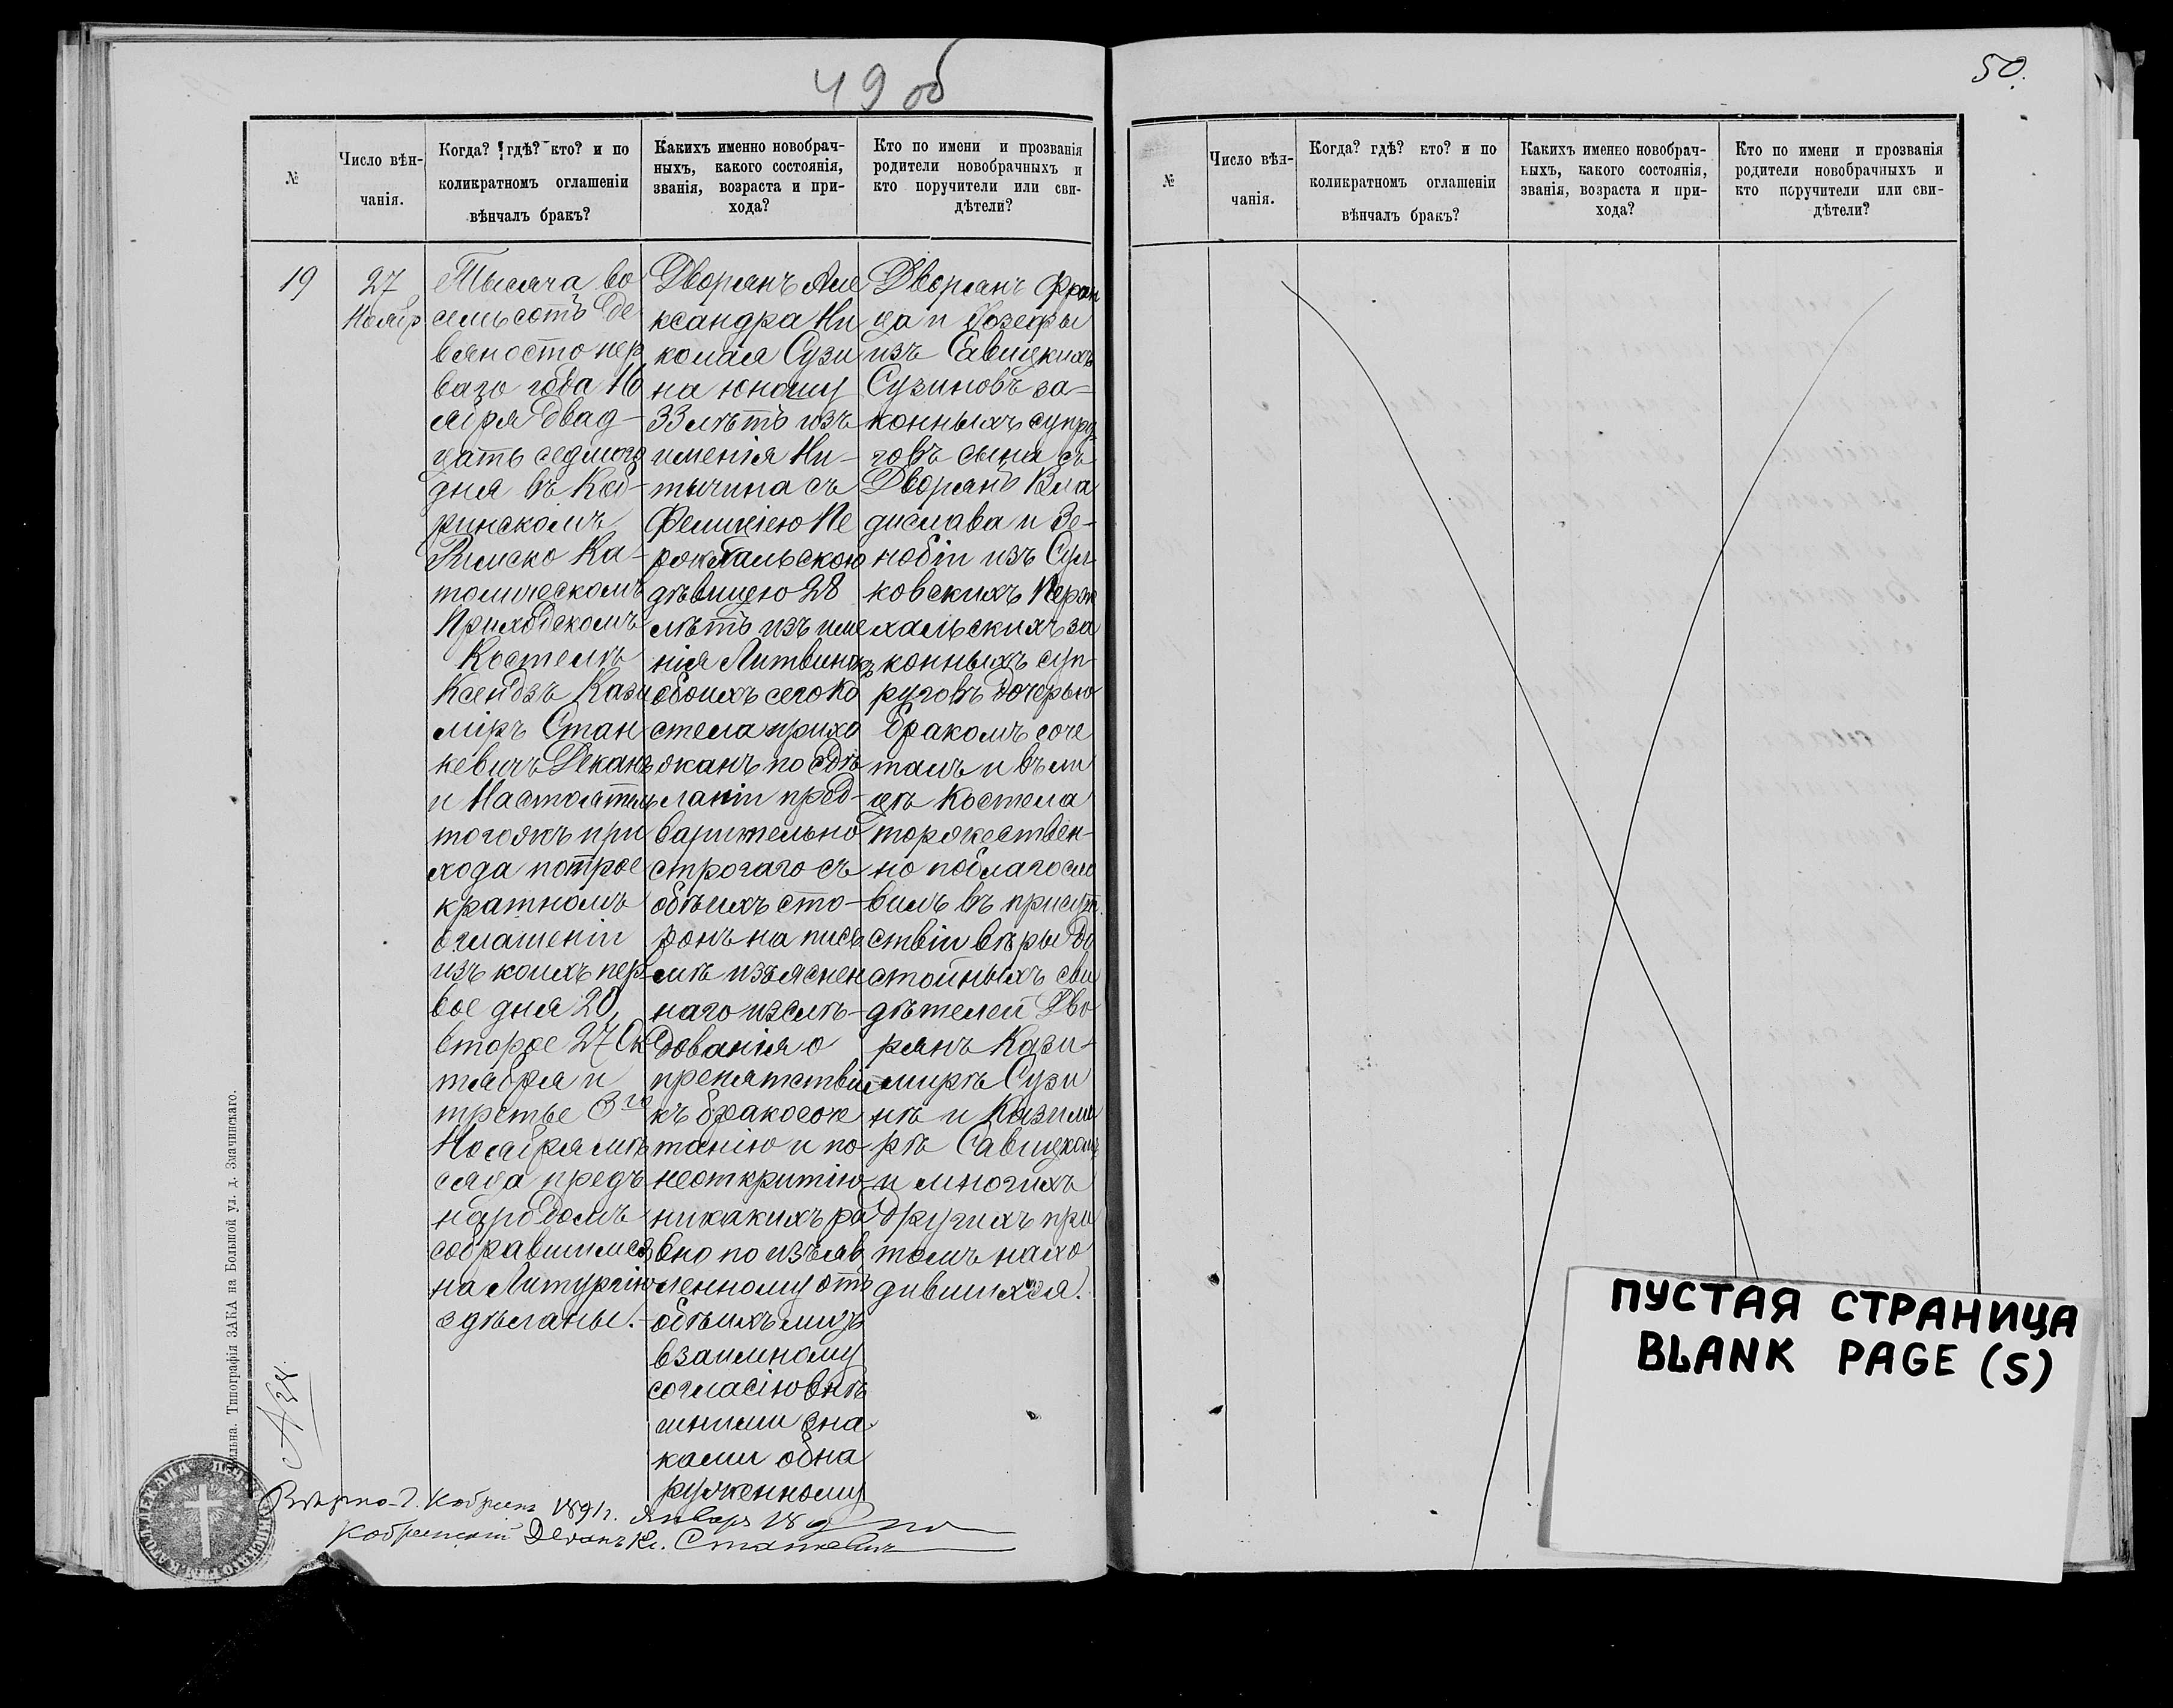 49 об
50.
№
Число вѣн-
чанія.
Когда? гдѣ? кто? и по
коликратномъ оглашеніи
вѣнчалъ бракъ?
Какихъ именно новобрач-
ныхъ, какого состоянія,
званія, возраста и при-
хода?
Кто по имени и прозванія
родители новобрачныхъ и
кто поручители или сви-
дѣтели?
19
27
Ноябр
Тысяча во
семьсотъ де
вяносто пер
ваго года Но
ября двад-
цать седмого
дня въ Коб-
ринскомъ
Римско Ка-
толическомъ
Приходскомъ
Костелѣ
Ксендзъ Кази
міръ Стан
кевичъ Деканъ
и Настоятель
тогожъ при
хода по трое
кратномъ
оглашеніи
изъ коихъ пер
вое дня 20,
второе 27 Ок
тября и
третье 3го
Ноября мѣ
сяца предъ
народомъ
собравшимся
на Литургію
здѣланы.
Дворянъ Але
ксандра Ни
колая Сузи
на юношу
33 лѣтъ изъ
именія Ни-
тычина съ
Фелиціею Пе
рожхальскою
дѣвицею 28
лѣтъ изъ име
нія Литвинокъ
обоихъ сего Ко
стела прихо
жанъ по здѣ
ланіи пред-
варительно
строгаго съ
обѣихъ сто-
ронъ на пись
мѣ изъяснен
наго изслѣ-
дованія о
препятствіи
къ бракосоче
танію и по-
неоткритію
никакихъ ра
вно по изъяв
ленному отъ
обѣихъ лицъ
взаимному
согласію внѣ
шними зна
ками обна
руженному
Дворянъ Фран
ца и Юзефы
изъ Савицкихъ
Сузиновъ за-
конныхъ супру
говъ сына съ
Дворянъ Вла
дислава и Зе-
нобіи изъ Сул
ковскихъ Перж
хальскихъ за
конныхъ суп-
руговъ дочерью
бракомъ соче
талъ и въ ли
цѣ Костела
торжествен-
но поблагосло
вилъ въ присут
ствіи вѣры до
стойныхъ сви
дѣтелей Дво
рянъ Кази-
мирѣ Сузи
нѣ и Казими
рѣ Савицкомъ
и многихъ
другихъ при
томъ нахо
дившихся.
Вѣрно. Г. Кобринъ 1891г. Январ 18
Кобринскій Деканъ Кс. Станкевичъ
Вильна. Типографія ЗАКА на Большой ул. д. Значинскаго.
№
Число вѣн-
чанія.
Когда? гдѣ? кто? и по
коликратномъ оглашеніи
вѣнчалъ бракъ?
Какихъ именно новобрач-
ныхъ, какого состоянія,
званія, возраста и при-
хода?
Кто по имени и прозванія
родители новобрачныхъ и
кто поручители или сви-
дѣтели?
ПУСТАЯ СТРАНИЦА
BLANK PAGE (S)